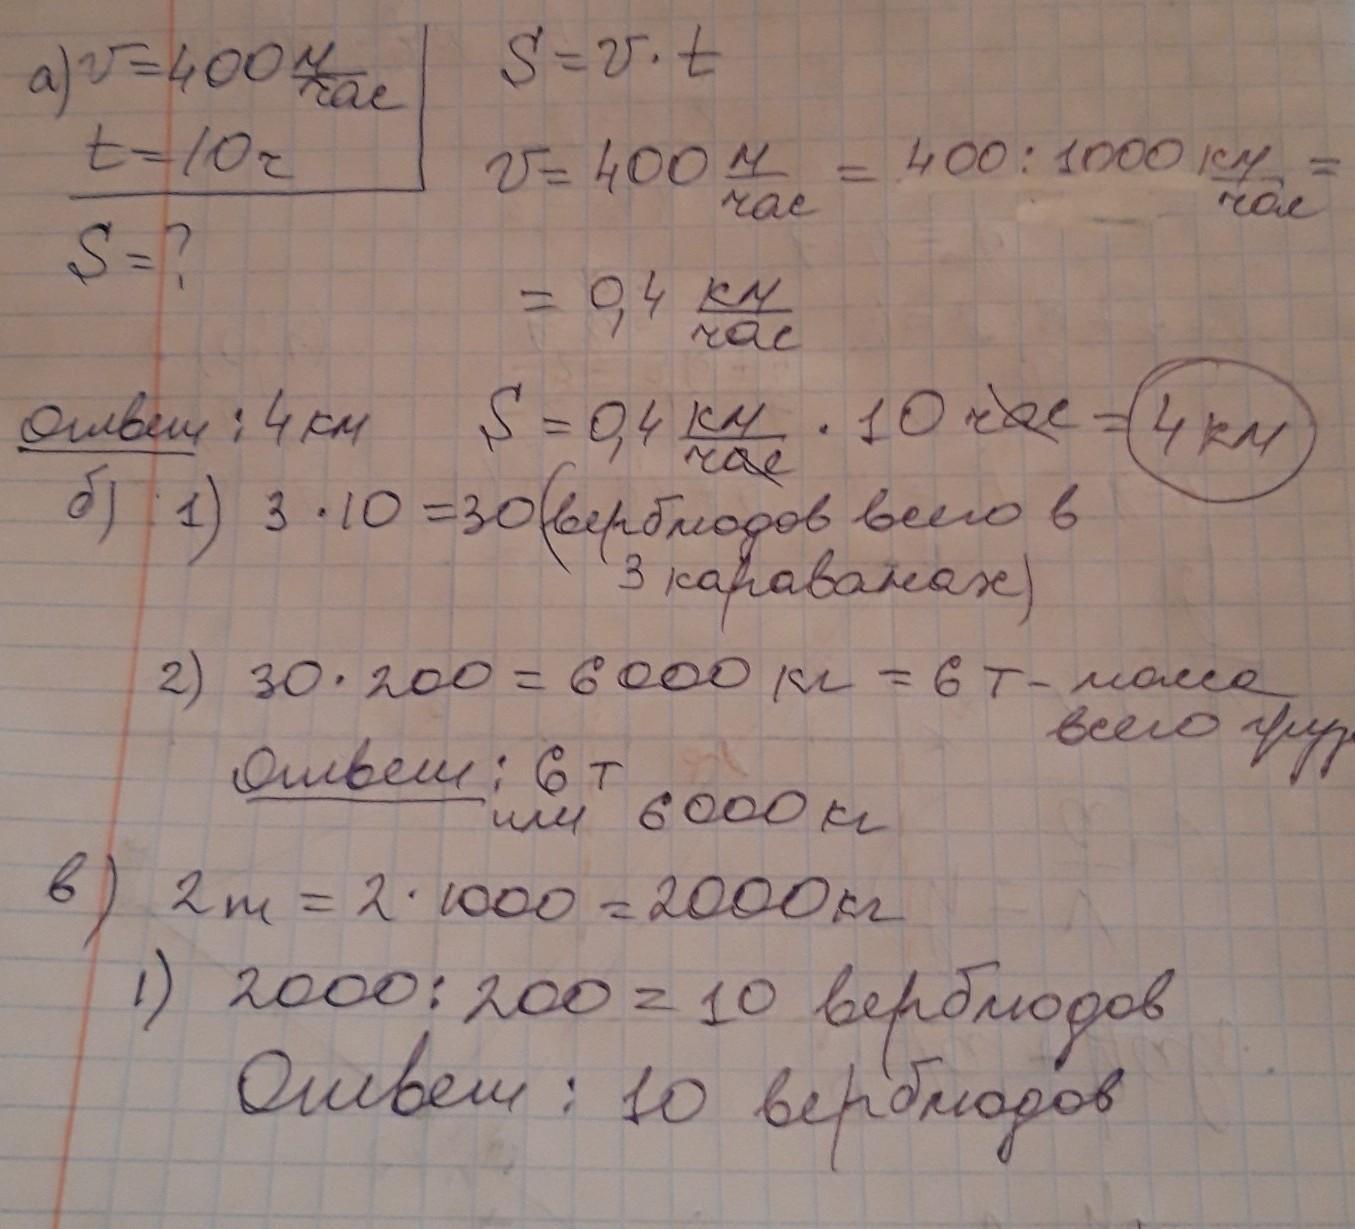 а) v=400 м/час
t=10ч
S=?
S=v·t
v=400 м/час = 400:1000 км/час =
= 0,4 км/час
Ответ: 4 км
S = 0,4 км/час · 10 час = 4 км
б) 1) 3·10=30(верблюдов всего в
3 караванах)
2) 30·200=6000 кг = 6 т - масса
всего груз
Ответ: 6 т
или 6000 кг
в) 2т = 2·1000=2000кг
1) 2000:200=10 верблюдов
Ответ: 10 верблюдов